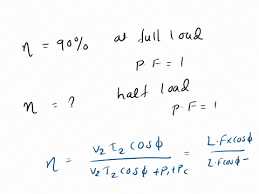 η = 90% at full load
P.F = 1
η = ? half load
P.F = 1
η = V₂ I₂ cosϕ / V₂ I₂ cosϕ + Pᵢ + Pc = L.F x cosϕ / L.F cosϕ -